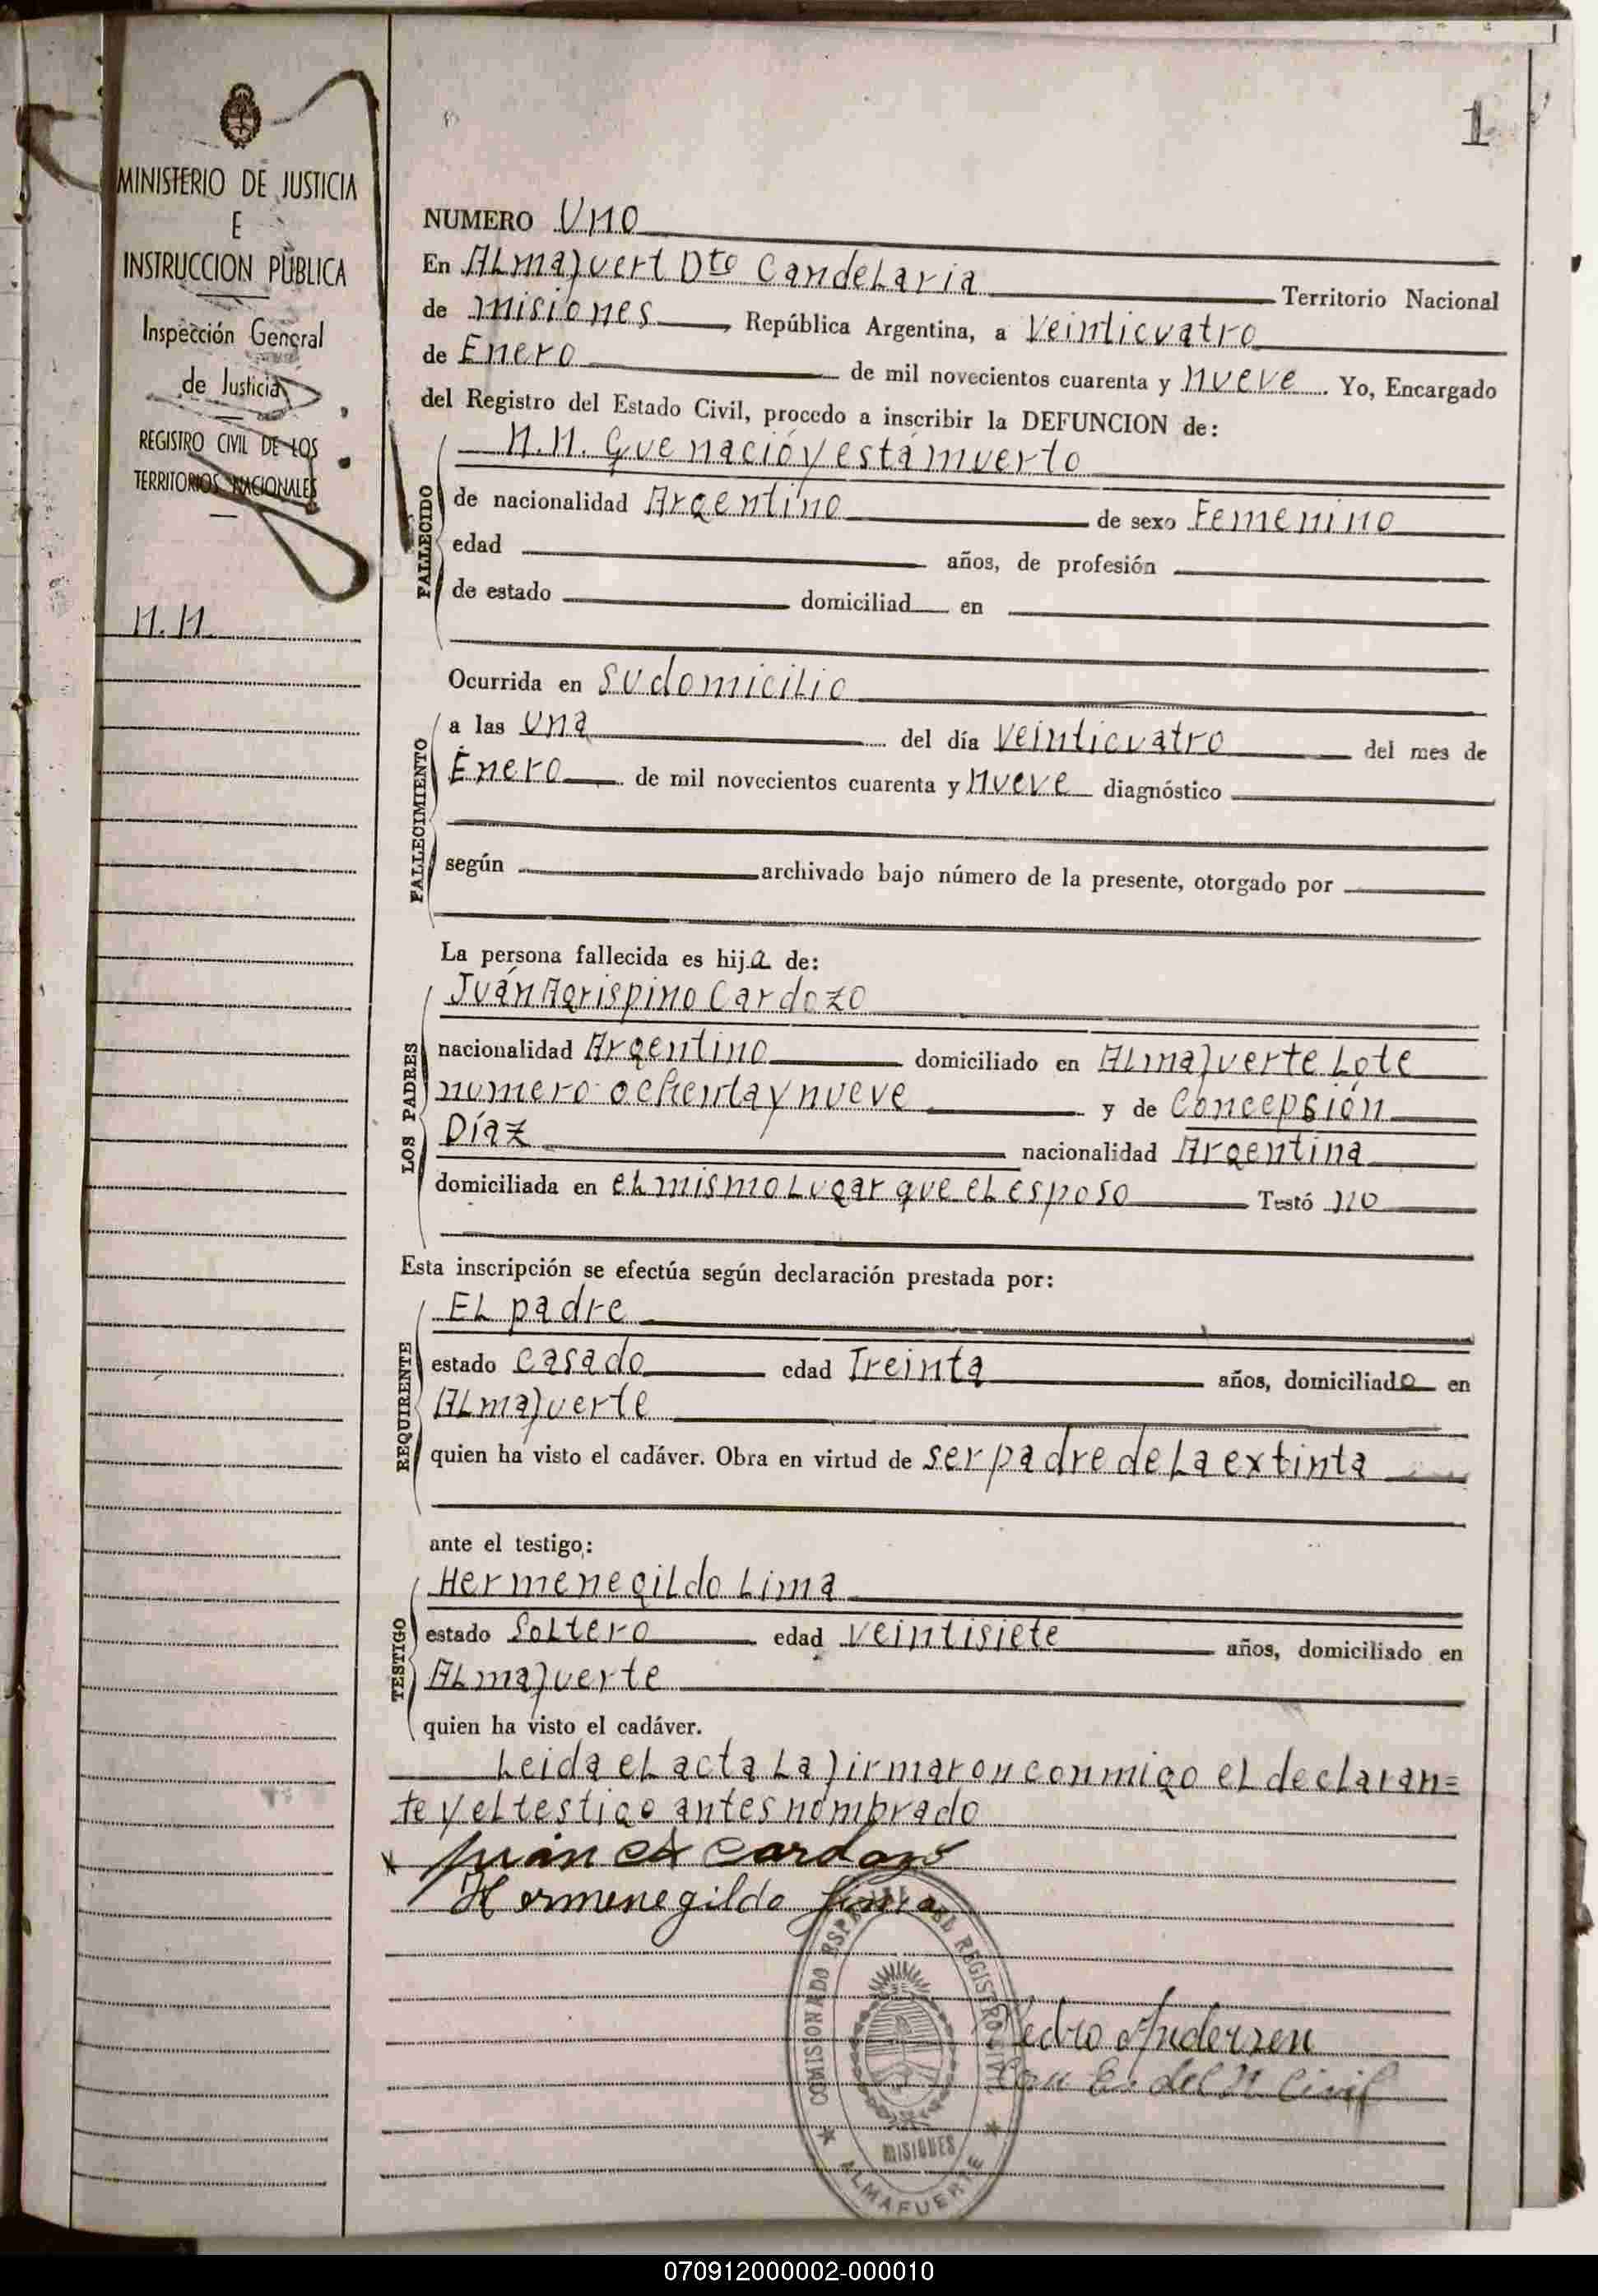 1
MINISTERIO DE JUSTICIA
E
INSTRUCCION PÚBLICA
Inspección General
de Justicia
REGISTRO CIVIL DE LOS
TERRITORIOS NACIONALES
N.N.
NUMERO Uno
En ALmafuert Dto CandeLaria Territorio Nacional
de misiones República Argentina, a Veinticuatro
de Enero de mil novecientos cuarenta y nueve. Yo, Encargado
del Registro del Estado Civil, procedo a inscribir la DEFUNCION de:
N.N. Que nació y está muerto
FALLECIDO
de nacionalidad Argentino de sexo Femenino
edad años, de profesión
de estado domiciliad en
Ocurrida en su domicilio
FALLECIMIENTO
a las una del día veinticuatro del mes de
Enero de mil novecientos cuarenta y nueve diagnóstico
según archivado bajo número de la presente, otorgado por
La persona fallecida es hija de:
LOS PADRES
Juán Agrispino Cardozo
nacionalidad Argentino domiciliado en ALmafuerte Lote
numero ochenta y nueve y de Concepsión
Díaz nacionalidad Argentina
domiciliada en eL mismo Lugar que eL esposo Testó no
Esta inscripción se efectúa según declaración prestada por:
REQUIRENTE
EL padre
estado casado edad Treinta años, domiciliado en
ALmafuerte
quien ha visto el cadáver. Obra en virtud de ser padre de La extinta
ante el testigo:
TESTIGO
HermenegiLdo Lima
estado SoLtero edad veintisiete años, domiciliado en
ALmafuerte
quien ha visto el cadáver.
Leida eL acta La firmaron conmigo eL decLaran=
te y eL testigo antes nombrado
x Juan A Cardozo
Hermenegildo Lima
COMISIONADO ESPECIAL DEL REGISTRO CIVIL
MISIONES
ALMAFUERTE
Pedro Anderzen
Com E. del R Civil
070912000002-000010